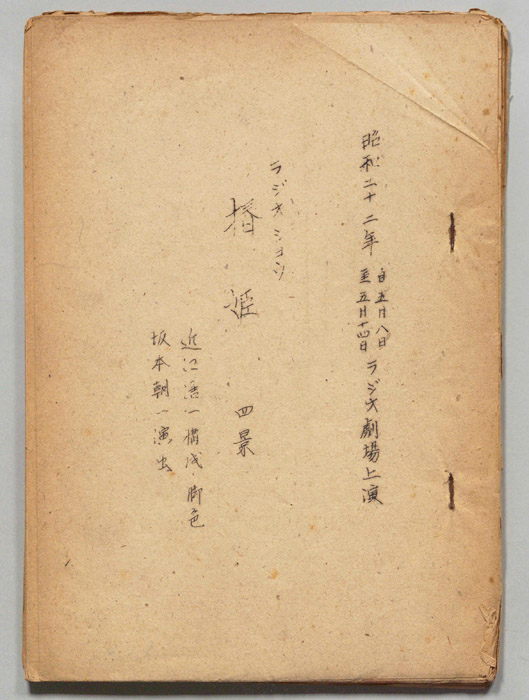 昭和二十二年 自五月八日 至五月十四日 ラジオ劇場上演
ラジオショウ
椿姫 四景
近江浩一構成・脚色
坂本朝一演出